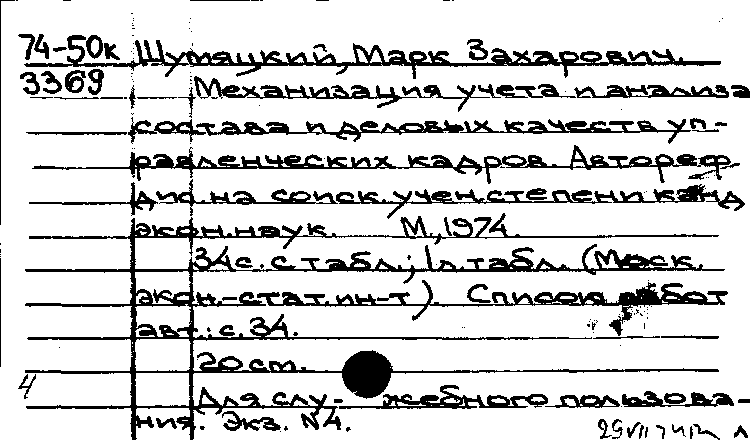 74-50к Шумяцкий, Марк Захарович.
3369 Механизация учета и анализа
состава и деловых качеств уп-
равленческих кадров. Автореф.
дис. на соиск. учен. степени канд
экон. наук. М., 1974.
34 с. с табл.; 1 л. табл. (Моск.
экон.-стат. ин-т). Список работ
авт.: с. 34.
20 см.
4 Для слу- жебного пользова-
ния. Экз. N4.